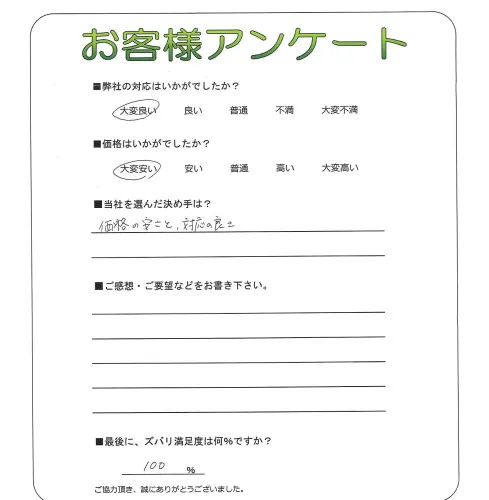 お客様アンケート
■弊社の対応はいかがでしたか？
大変良い 良い 普通 不満 大変不満
■価格はいかがでしたか？
大変安い 安い 普通 高い 大変高い
■当社を選んだ決め手は？
価格の安さと、対応の良さ
■ご感想・ご要望などをお書き下さい。
■最後に、ズバリ満足度は何％ですか？
100 ％
ご協力頂き、誠にありがとうございました。